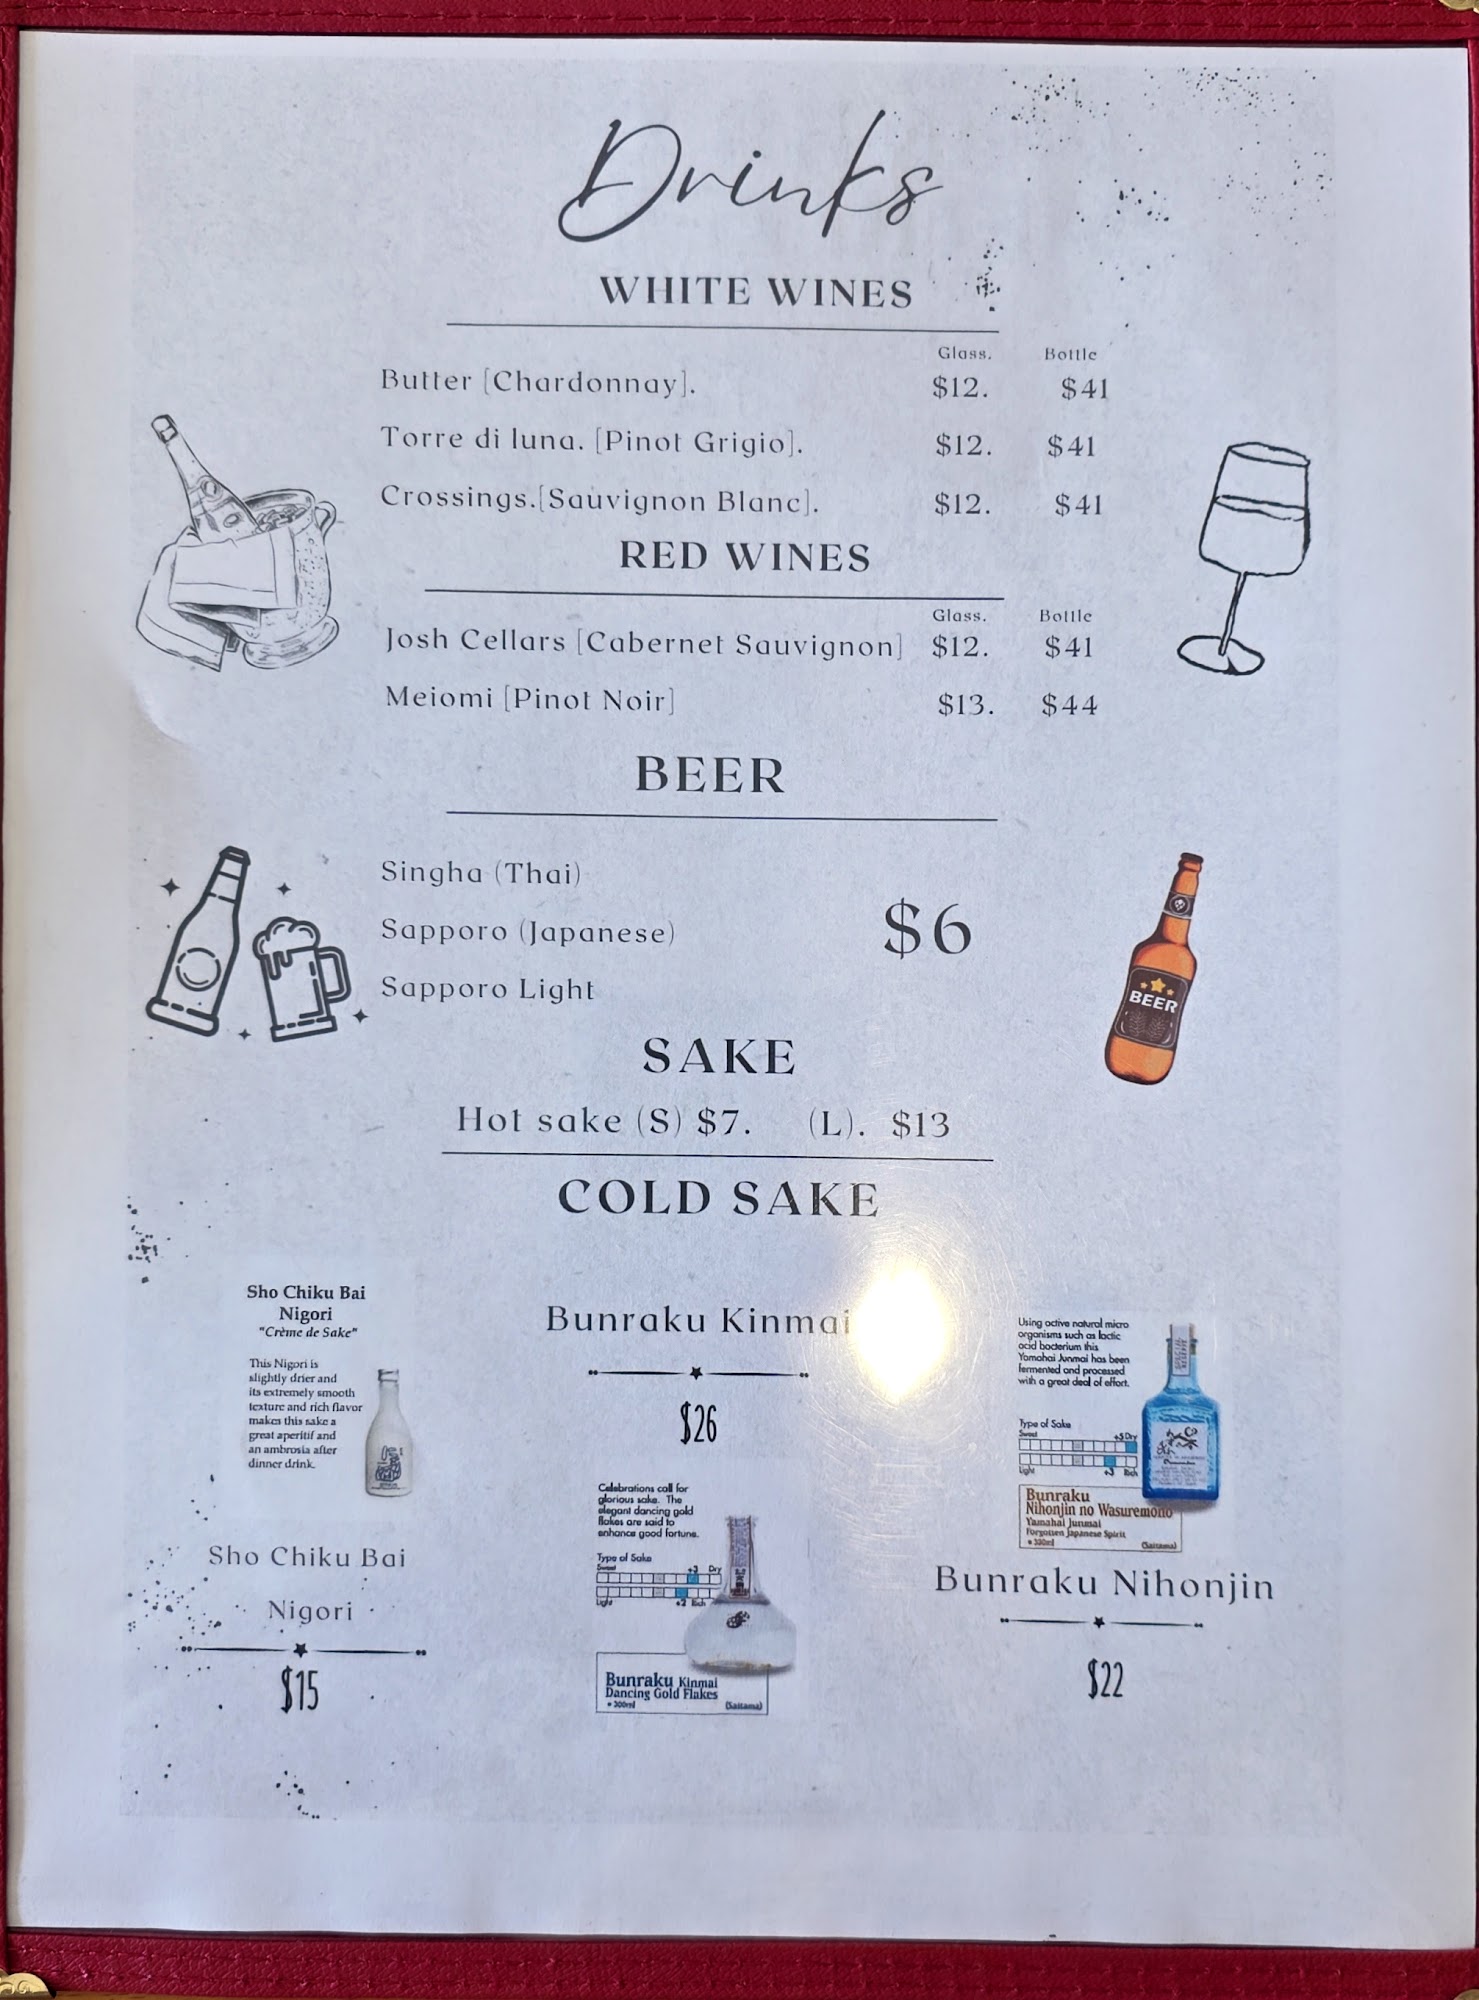 Drinks
WHITE WINES
Glass. Bottle
Butter [Chardonnay]. $12. $41
Torre di luna. [Pinot Grigio]. $12. $41
Crossings.[Sauvignon Blanc]. $12. $41
RED WINES
Glass. Bottle
Josh Cellars [Cabernet Sauvignon] $12. $41
Meiomi [Pinot Noir] $13. $44
BEER
Singha (Thai)
Sapporo (Japanese) $6
Sapporo Light
BEER
SAKE
Hot sake (S) $7. (L). $13
COLD SAKE
Sho Chiku Bai
Nigori
"Crème de Sake"
This Nigori is
slightly drier and
its extremely smooth
texture and rich flavor
makes this sake a
great aperitif and
an ambrosia after
dinner drink.
Sho Chiku Bai
Nigori
$15
Bunraku Kinmai
$26
Celebrations call for
glorious sake. The
elegant dancing gold
flakes are said to
enhance good fortune.
Type of Sake
Sweet +3 Dry
Light +2 Rich
Bunraku Kinmai
Dancing Gold Flakes
• 300ml (Saitama)
Using active natural micro
organisms such as lactic
acid bacterium this
Yamahai Junmai has been
fermented and processed
with a great deal of effort.
Type of Sake
Sweet +5 Dry
Light +3 Rich
Bunraku
Nihonjin no Wasuremono
Yamahai Junmai
Forgotten Japanese Spirit
• 300ml (Saitama)
Bunraku Nihonjin
$22